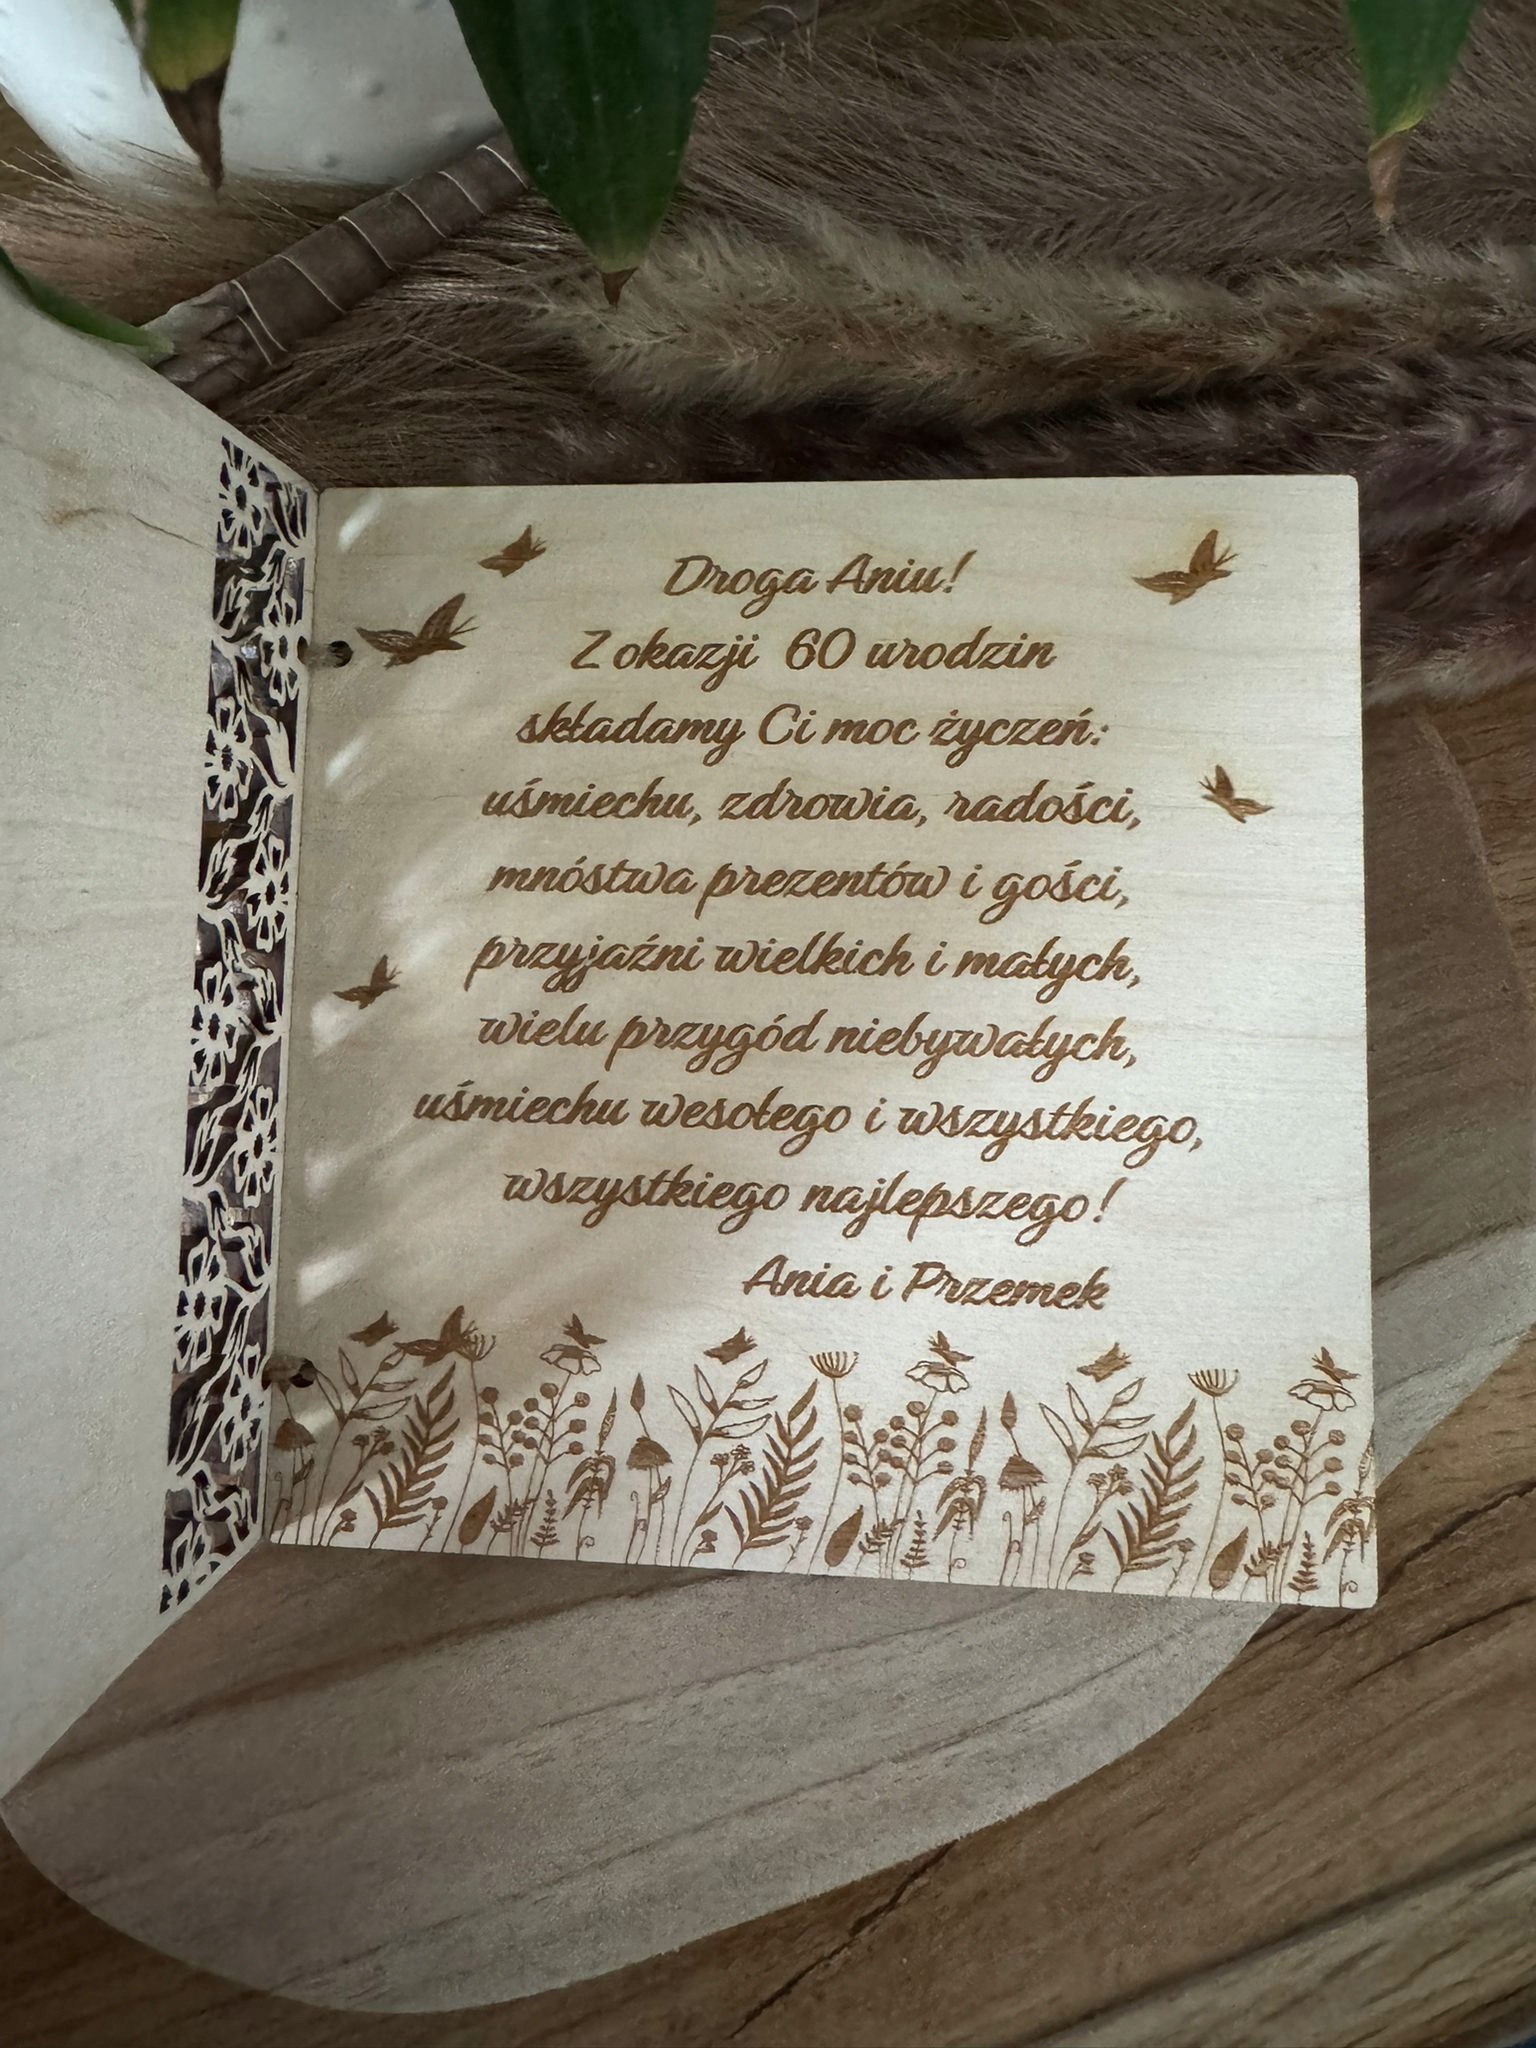 Droga Aniu!
Z okazji 60 urodzin
składamy Ci moc życzeń:
uśmiechu, zdrowia, radości,
mnóstwa prezentów i gości,
przyjaźni wielkich i małych,
wielu przygód niebywałych,
uśmiechu wesołego i wszystkiego,
wszystkiego najlepszego!
Ania i Przemek